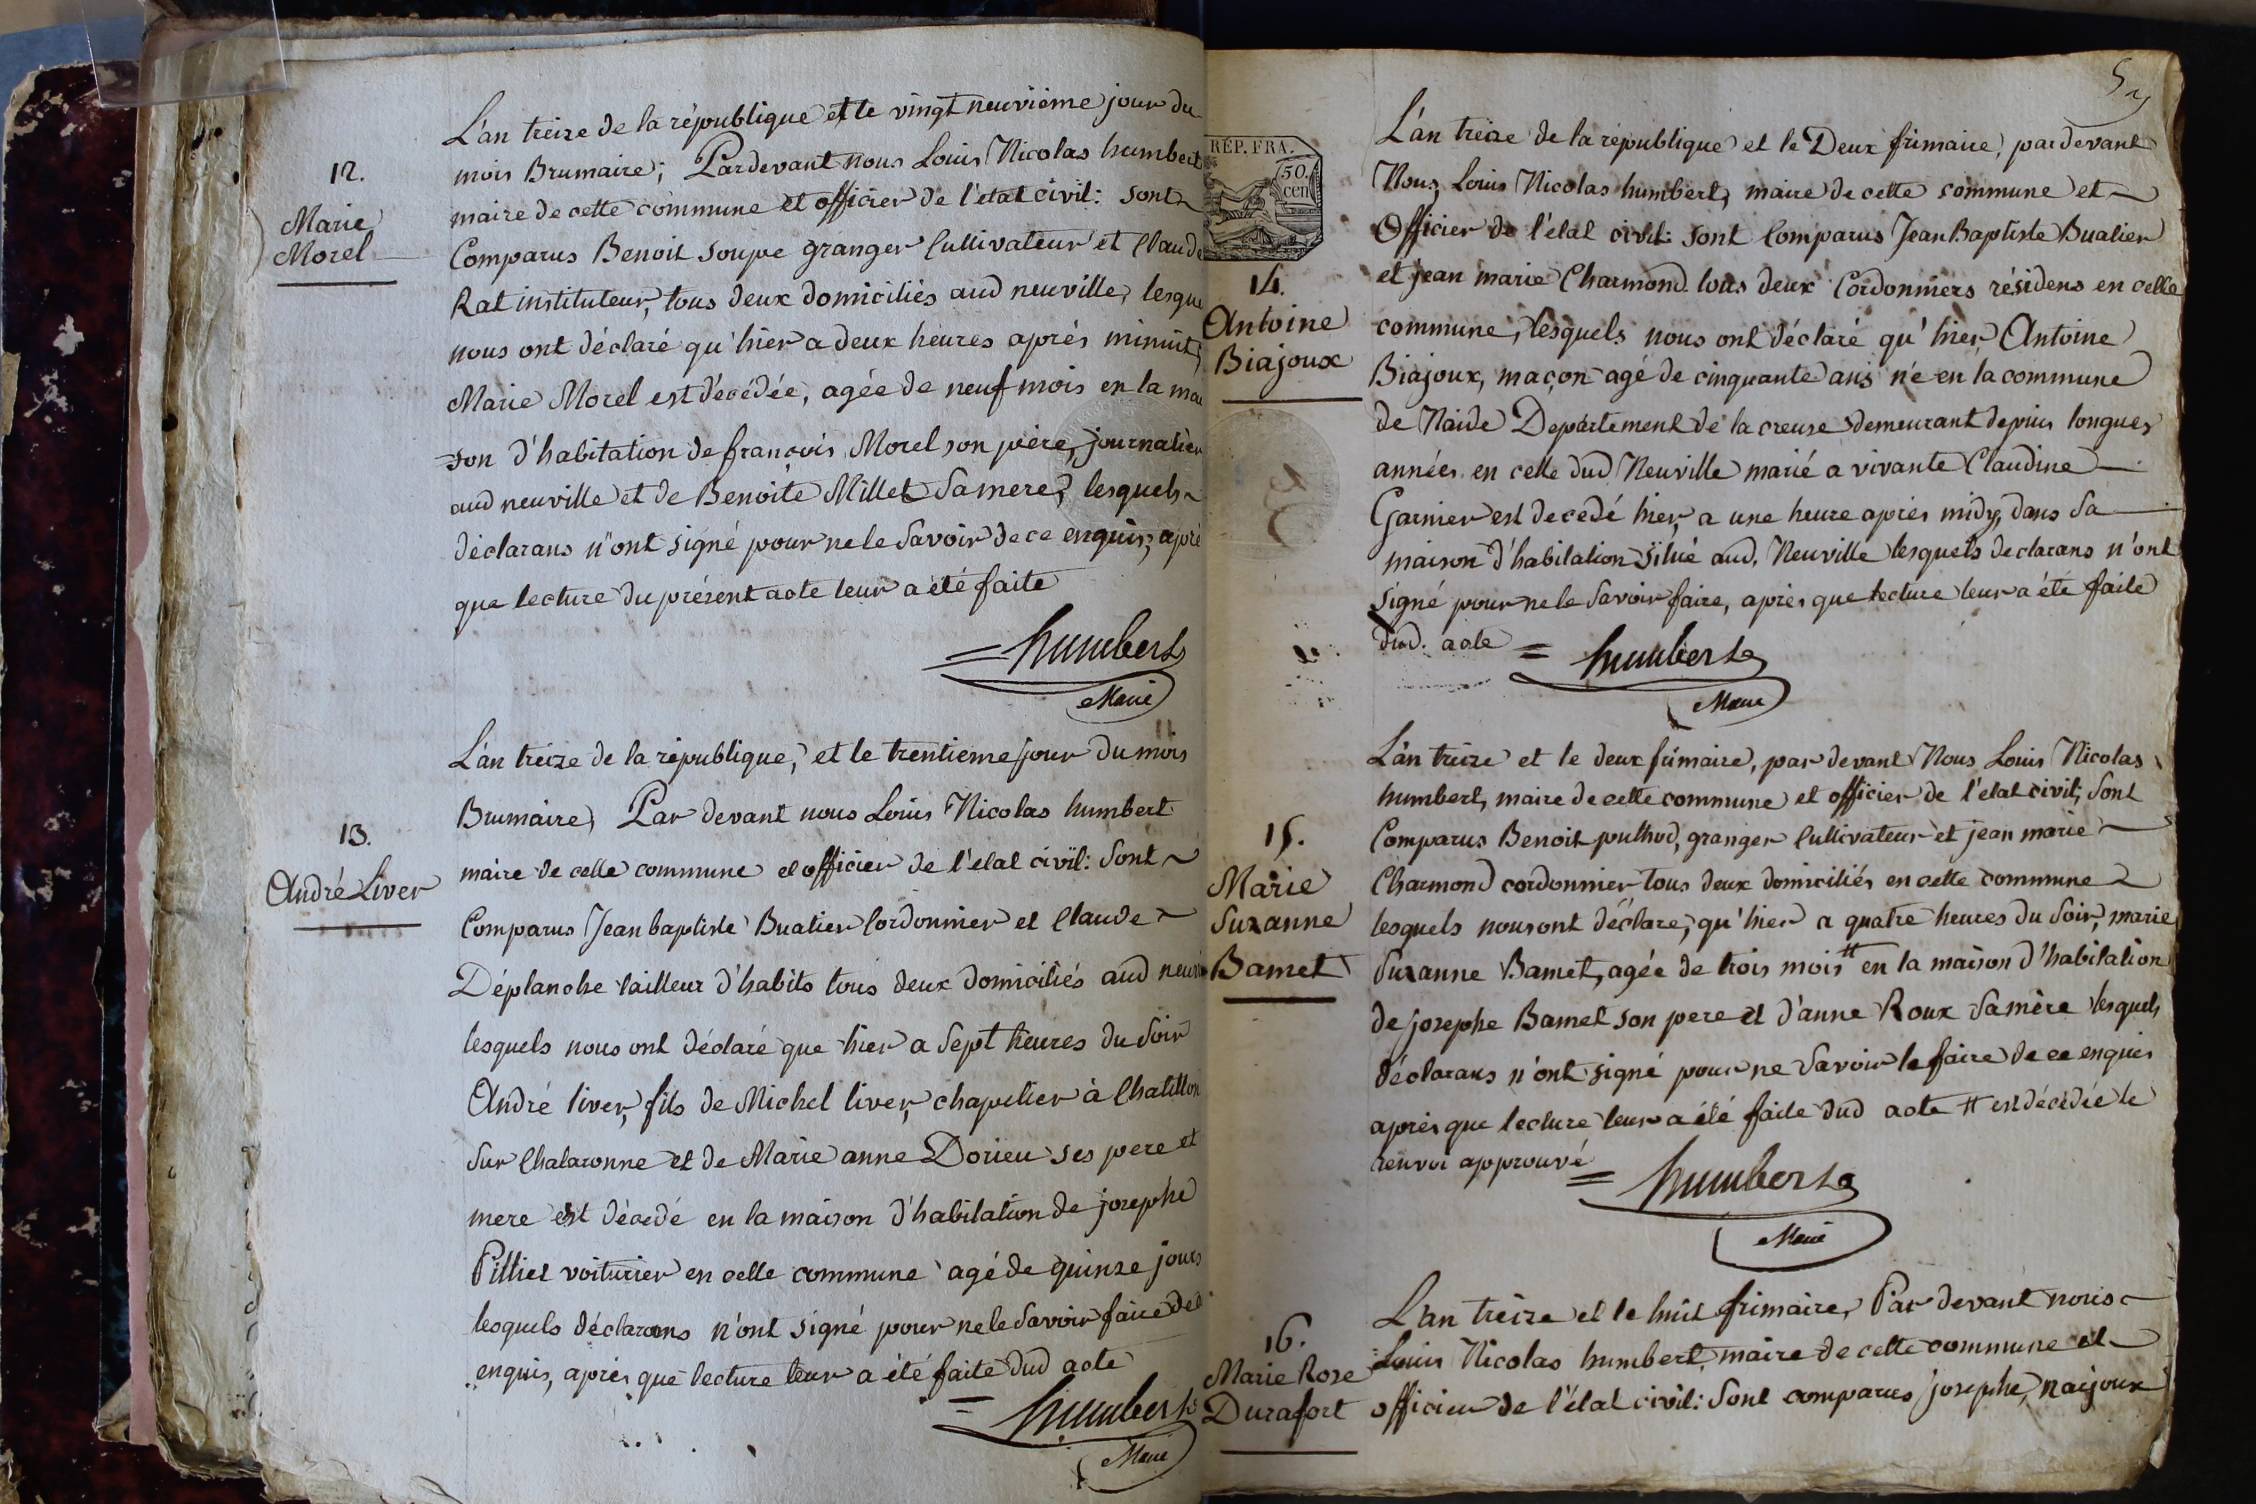 12.
Marie
Morel
L'an treize de la république et le vingt neuvième jour du
mois Brumaire; Pardevant nous Louis Nicolas humbert
maire de cette commune et officier de l'état civil: sont
Comparus Benoit soupe granger Cultivateur et Claude
Rat instituteur, tous deux domiciliés aud neuville, lesque
nous ont déclaré qu'hier a deux heures après minuit,
Marie Morel est décédée, agée de neuf mois en la mai
son d'habitation de françois Morel son père, journalier
aud neuville et de Benoite Millet Sa mere, lesquels
déclarans n'ont signé pour ne le Savoir de ce enquis, aprè
que lecture du présent acte leur a été faite
= humbert
Maire
13.
André Liver
L'an treize de la république, et le trentieme jour du mois
Brumaire, Par devant nous Louis Nicolas humbert
maire de cette commune et officier de l'etat civil: Sont
Comparus Jean baptiste Buatier Cordonnier et Claude
Déplanche tailleur d'habits tous deux domiciliés aud neuvi
lesquels nous ont déclaré que hier a Sept heures du Soir
André liver, fils de Michel liver, chapelier à Chatillon
Sur Chalaronne et de Marie anne Dorieu ses pere et
mere est décédé en la maison d'habitation de josephe
Pilliet voiturier en cette commune agé de quinze jours
lesquels déclarans n'ont signé pour ne le Savoir faire de ce
enquis, après que lecture leur a été faite dud acte
= humbert
Maire
RÉP. FRA.
50.
cen
14.
Antoine
Biajoux
L'an treize de la république et le Deux frimaire, pardevant
Nous, Louis Nicolas humbert, maire de cette commune et
Officier de l'état civil: sont Comparus Jean Baptiste Buatier
et jean marie Charmond tous deux Cordonniers résidens en cette
commune, lesquels nous ont déclaré qu'hier Antoine
Biajoux, maçon agé de cinquante ans né en la commune
de Naide Departement de la creuse demeurant depuis longues
années en cette dud Neuville marié a vivante Claudine
Garnier est decedé hier, a une heure après midy, dans Sa
maison d'habitation situé aud. Neuville lesquels declarans n'ont
signé pour ne le Savoir faire, après que lecture leur a été faite
dud. acte = humbert
Maire
15.
Marie
Suzanne
Bamet
L'an treize et le deux frimaire, par devant Nous Louis Nicolas
humbert, maire de cette commune et officier de l'etat civil, Sont
Comparus Benoit pulhod, granger Cultivateur et jean marie
Charmond cordonnier tous deux domiciliés en cette commune
lesquels nous ont déclare, qu'hier a quatre heures du Soir, marie
Suzanne Bamet, agée de trois mois # en la maison d'habitation
de josephe Bamet son pere et d'anne Roux Sa mère lesquels
déclarans n'ont signé pour ne Savoir le faire de ce enquis
après que lecture leur a été faite dud acte # est décédée le
renvoi approuvé
= humbert
Maire
16.
Marie Rose
Durafort
L'an treize et le huit frimaire, Par devant nous
Louis Nicolas humbert, maire de cette commune et
officier de l'état civil: Sont comparus josephe, naijoux